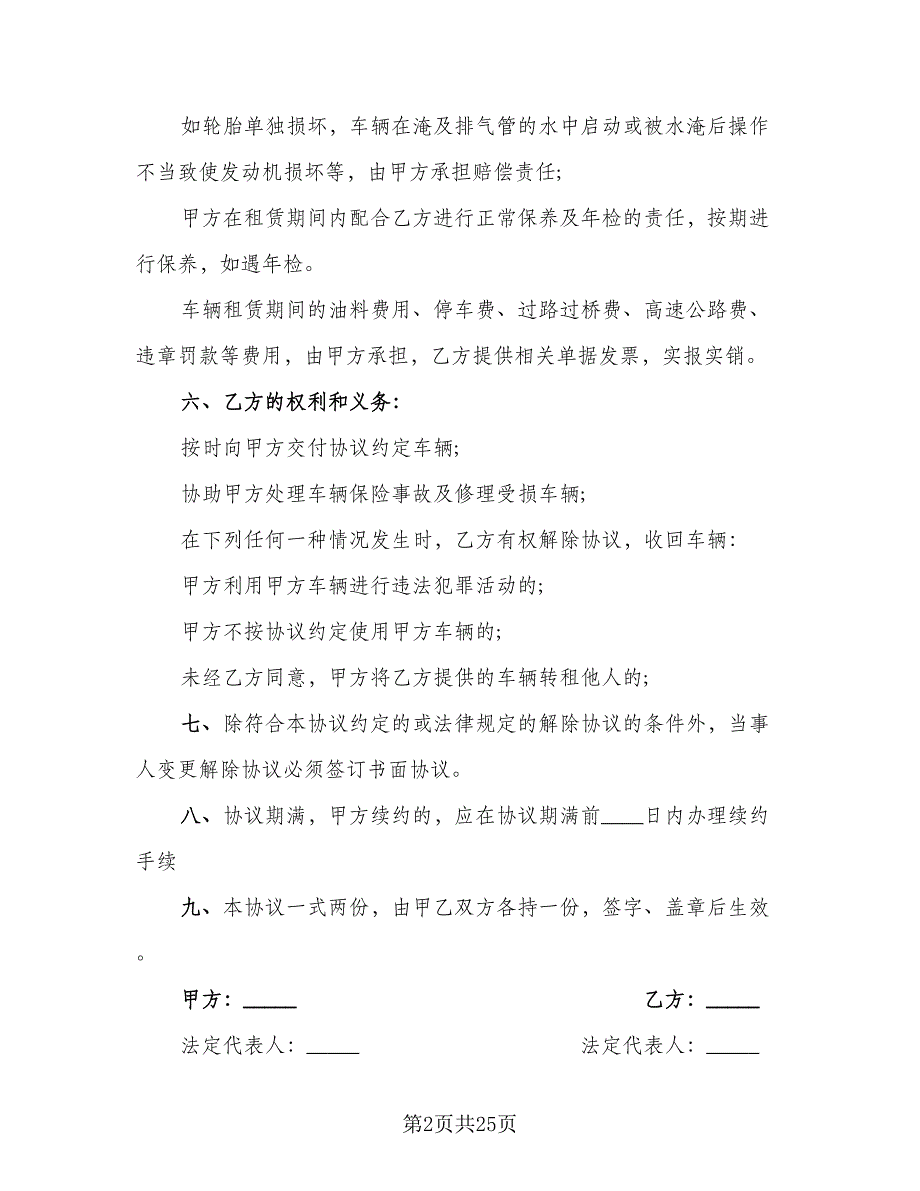 如轮胎单独损坏，车辆在淹及排气管的水中启动或被水淹后操作
不当致使发动机损坏等，由甲方承担赔偿责任;
甲方在租赁期间内配合乙方进行正常保养及年检的责任，按期进
行保养，如遇年检。
车辆租赁期间的油料费用、停车费、过路过桥费、高速公路费、
违章罚款等费用，由甲方承担，乙方提供相关单据发票，实报实销。
六、乙方的权利和义务：
按时向甲方交付协议约定车辆;
协助甲方处理车辆保险事故及修理受损车辆;
在下列任何一种情况发生时，乙方有权解除协议，收回车辆：
甲方利用甲方车辆进行违法犯罪活动的;
甲方不按协议约定使用甲方车辆的;
未经乙方同意，甲方将乙方提供的车辆转租他人的;
七、除符合本协议约定的或法律规定的解除协议的条件外，当事
人变更解除协议必须签订书面协议。
八、协议期满，甲方续约的，应在协议期满前____日内办理续约
手续
九、本协议一式两份，由甲乙双方各持一份，签字、盖章后生效
。
甲方：_____ 乙方：_____
法定代表人：_____ 法定代表人：_____
第2页共25页